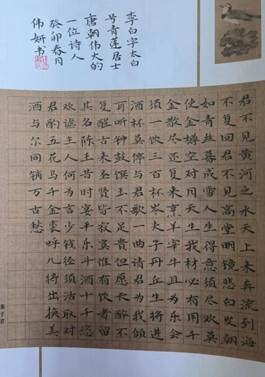 李白字太白
号青莲居士
唐朝伟大的
一位诗人
癸卯春月
伟妍书
君不见黄河之水天上来奔流到海
不复回君不见高堂明镜悲白发朝
如青丝暮成雪人生得意须尽欢莫
使金樽空对月天生我材必有用千
金散尽还复来烹羊宰牛且为乐会
须一饮三百杯岑夫子丹丘生将进
酒杯莫停与君歌一曲请君为我倾
耳听钟鼓馔玉不足贵但愿长醉不
复醒古来圣贤皆寂寞惟有饮者留
其名陈王昔时宴平乐斗酒十千恣
欢谑主人何为言少钱径须沽取对
君酌五花马千金裘呼儿将出换美
酒与尔同销万古愁